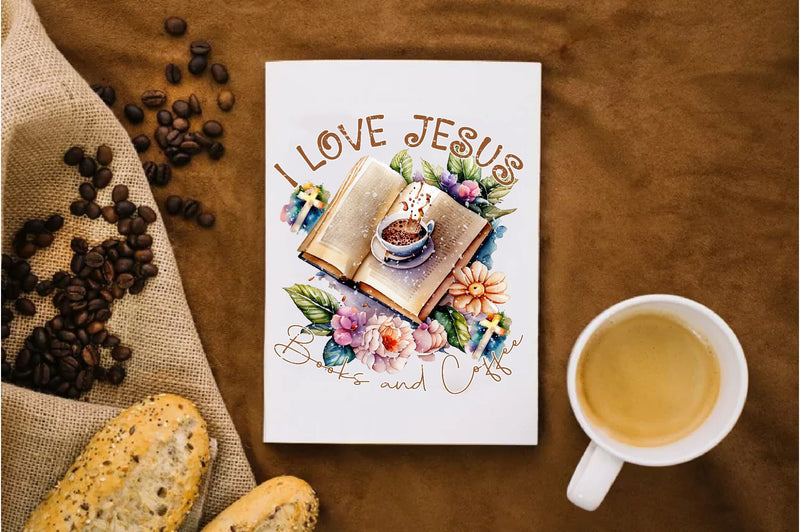 I LOVE JESUS
Books and Coffee